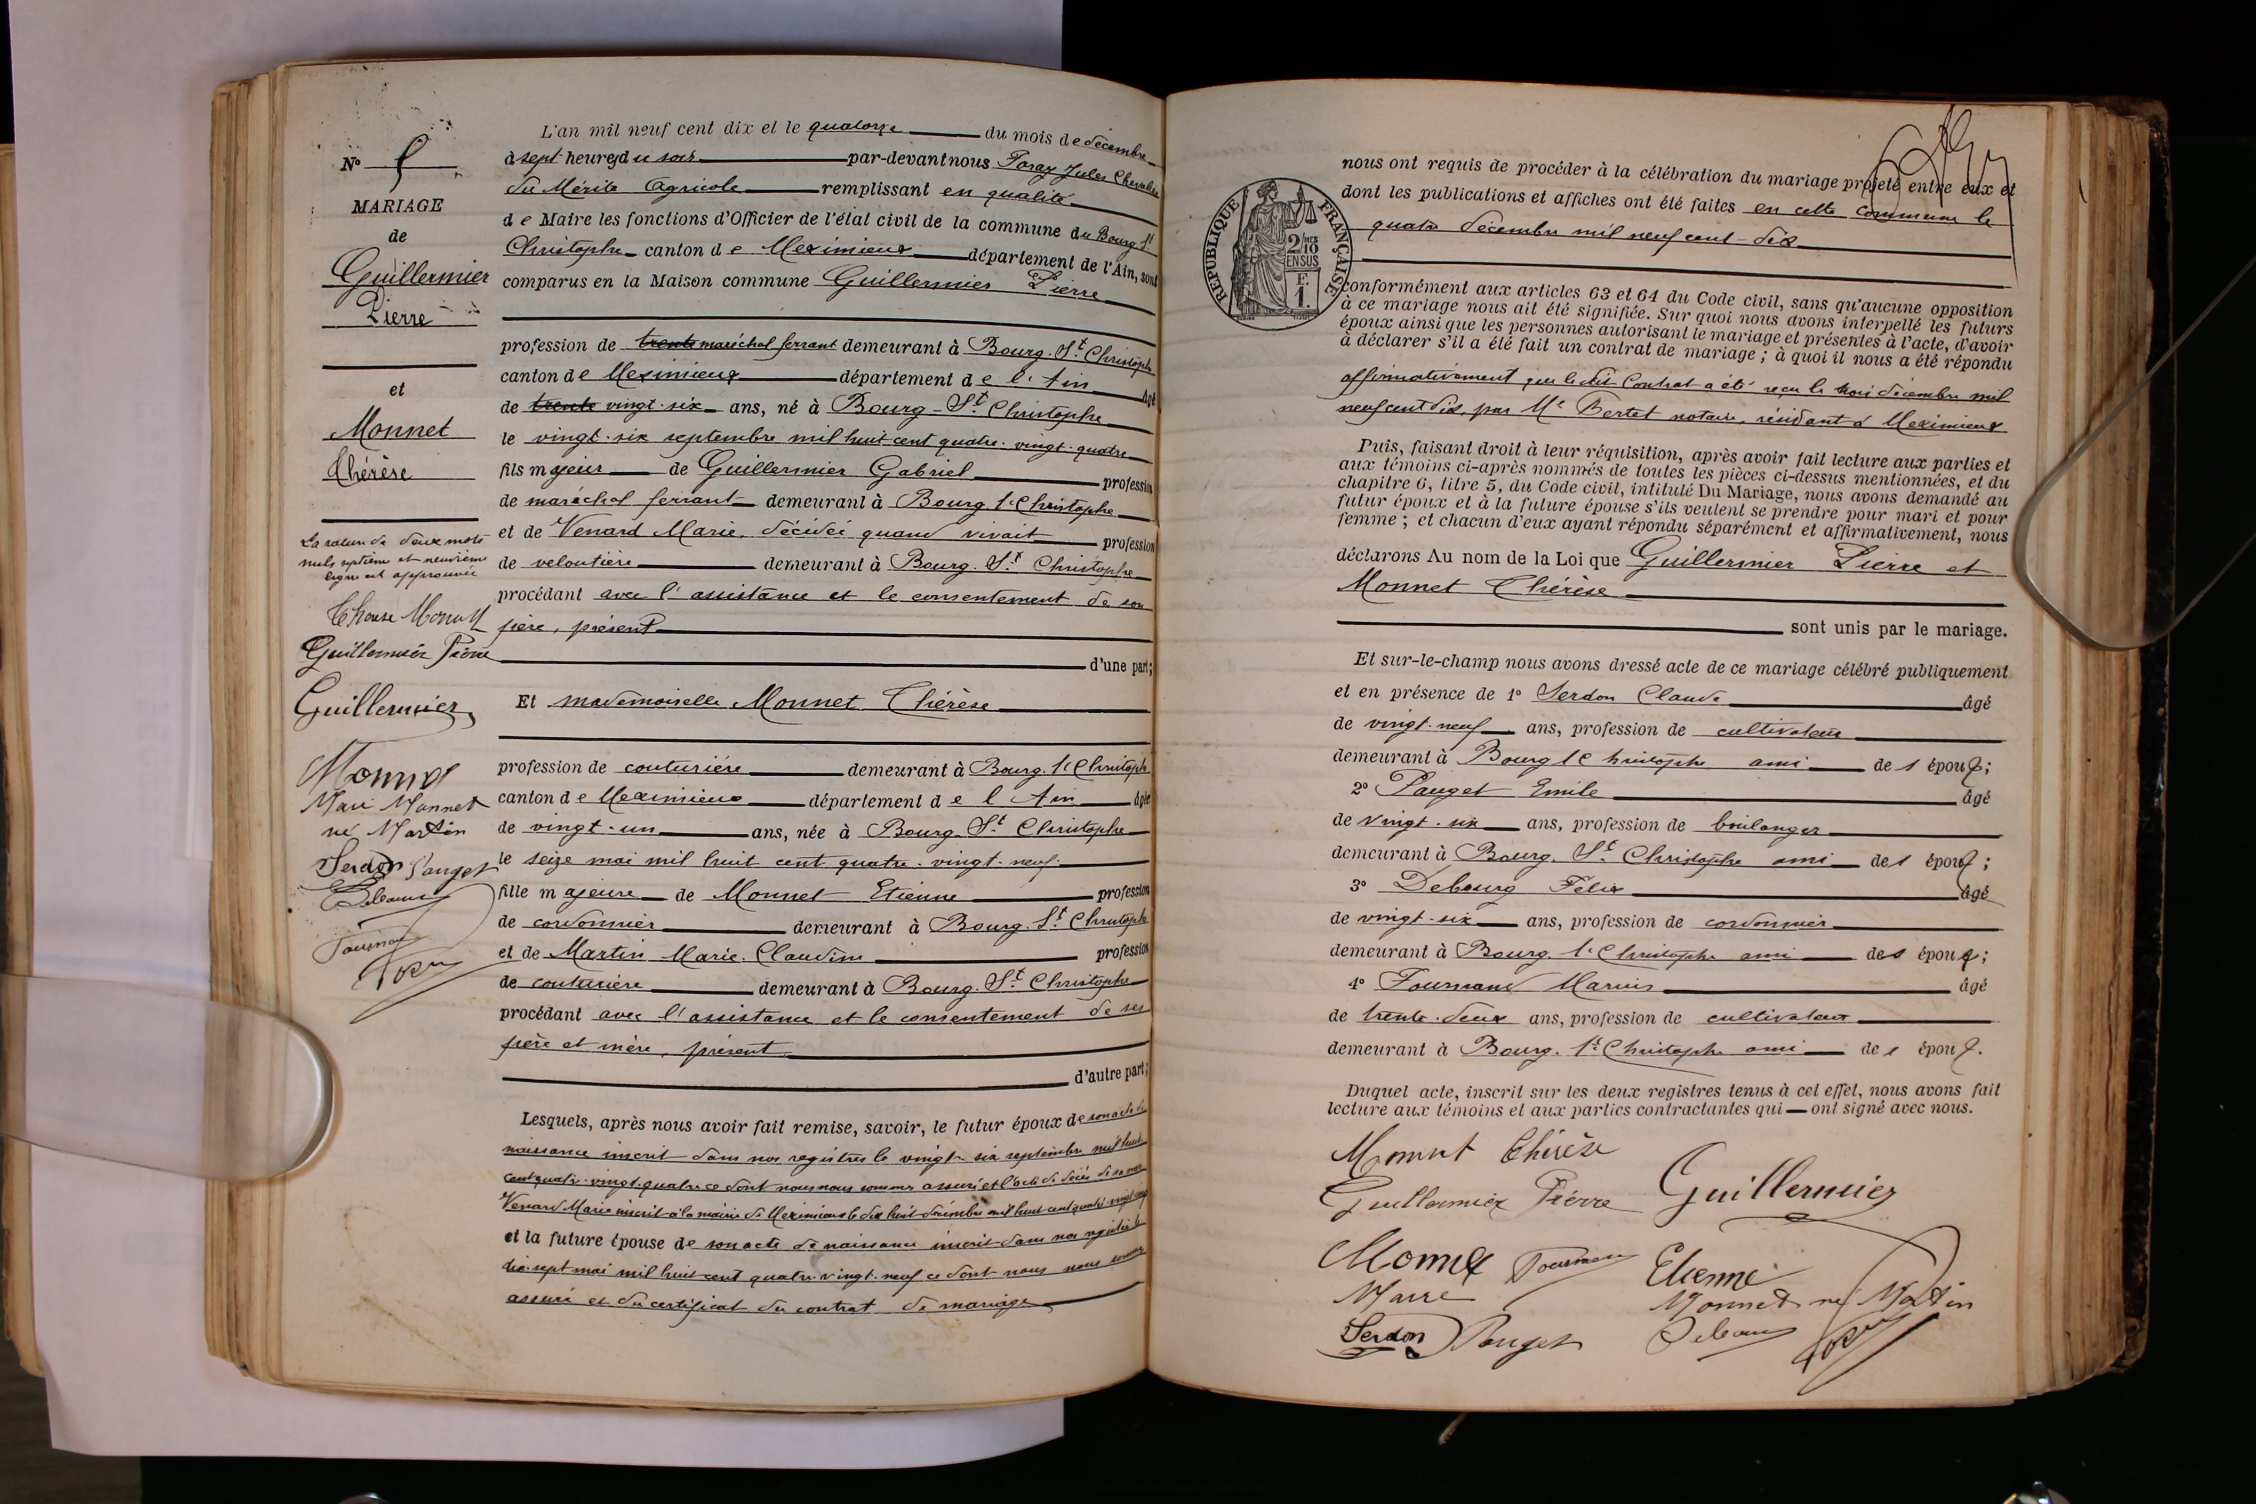 N° 5
MARIAGE
de
Guillermier
Pierre
et
Monnet
Thérèse
La rature de deux mots
nuls septième et neuvième
ligne est approuvée
Guillermier Pierre
Guillermier
Monnet
Marie Monnet
né Martin
Serdon Pauget
L'an mil neuf cent dix et le quatorze du mois de décembre
à sept heures du soir par-devant nous Jules Chevalier
du Mérite Agricole remplissant en qualité
de Maire les fonctions d'Officier de l'état civil de la commune du Bourg St
Christophe canton de Meximieux département de l'Ain, sont
comparus en la Maison commune Guillermier Pierre
profession de trente maréchal ferrant demeurant à Bourg. St Christophe
canton de Meximieux département de l'Ain âgé
de trente vingt-six ans, né à Bourg-St Christophe
le vingt-six septembre mil huit cent quatre-vingt-quatre
fils majeur de Guillermier Gabriel profession
de maréchal ferrant demeurant à Bourg St Christophe
et de Venard Marie, décédée quand vivait profession
de veloutière demeurant à Bourg. St Christophe
procédant avec l'assistance et le consentement de son
père, présent
d'une part;
Et mademoiselle Monnet Thérèse
profession de couturière demeurant à Bourg. St Christophe
canton de Meximieux département de l'Ain âgée
de vingt-un ans, née à Bourg St Christophe
le seize mai mil huit cent quatre-vingt-neuf
fille majeure de Monnet Etienne profession
de cordonnier demeurant à Bourg. St Christophe
et de Martin Marie Claudine profession
de couturière demeurant à Bourg. St Christophe
procédant avec l'assistance et le consentement de ses
père et mère, présent
d'autre part;
Lesquels, après nous avoir fait remise, savoir, le futur époux de son acte de
naissance inscrit dans nos registres le vingt six septembre mil huit
cent quatre-vingt-quatre ce dont nous nous sommes assuré et l'acte de décès de sa mère
Venard Marie inscrit à la mairie de Meximieux le dix huit décembre mil huit cent quatre vingt
et la future épouse de son acte de naissance inscrit dans nos registres le
dix-sept mai mil huit cent quatre-vingt-neuf ce dont nous nous sommes
assuré et du certificat du contrat de mariage
RÉPUBLIQUE FRANÇAISE
2/10
EN SUS
F.
1.
nous ont requis de procéder à la célébration du mariage projeté entre eux et
dont les publications et affiches ont été faites en cette commune le
quatre décembre mil neuf cent-dix
conformément aux articles 63 et 64 du Code civil, sans qu'aucune opposition
à ce mariage nous ait été signifiée. Sur quoi nous avons interpellé les futurs
époux ainsi que les personnes autorisant le mariage et présentes à l'acte, d'avoir
à déclarer s'il a été fait un contrat de mariage; à quoi il nous a été répondu
affirmativement, que le dit Contrat a été reçu le trois décembre mil
neuf cent dix, par Me Bertet notaire, résidant à Meximieux
Puis, faisant droit à leur réquisition, après avoir fait lecture aux parties et
aux témoins ci-après nommés de toutes les pièces ci-dessus mentionnées, et du
chapitre 6, titre 5, du Code civil, intitulé Du Mariage, nous avons demandé au
futur époux et à la future épouse s'ils veulent se prendre pour mari et pour
femme; et chacun d'eux ayant répondu séparément et affirmativement, nous
déclarons Au nom de la Loi que Guillermier Pierre et
Monnet Thérèse
sont unis par le mariage.
Et sur-le-champ nous avons dressé acte de ce mariage célébré publiquement
et en présence de 1° Serdon Claude âgé
de vingt-neuf ans, profession de cultivateur
demeurant à Bourg St Christophe ami des époux;
2° Pauget Emile âgé
de vingt-six ans, profession de boulanger
demeurant à Bourg. St Christophe ami des époux;
3° Debourg Félix âgé
de vingt-six ans, profession de cordonnier
demeurant à Bourg. St Christophe ami des époux;
4° Tournand Marius âgé
de trente-deux ans, profession de cultivateur
demeurant à Bourg. St Christophe ami des époux.
Duquel acte, inscrit sur les deux registres tenus à cet effet, nous avons fait
lecture aux témoins et aux parties contractantes qui ont signé avec nous.
Monnet Thérèse
Guillermier Pierre Guillermier
Monnet Etienne
Marie Monnet né Martin
Serdon Pauget